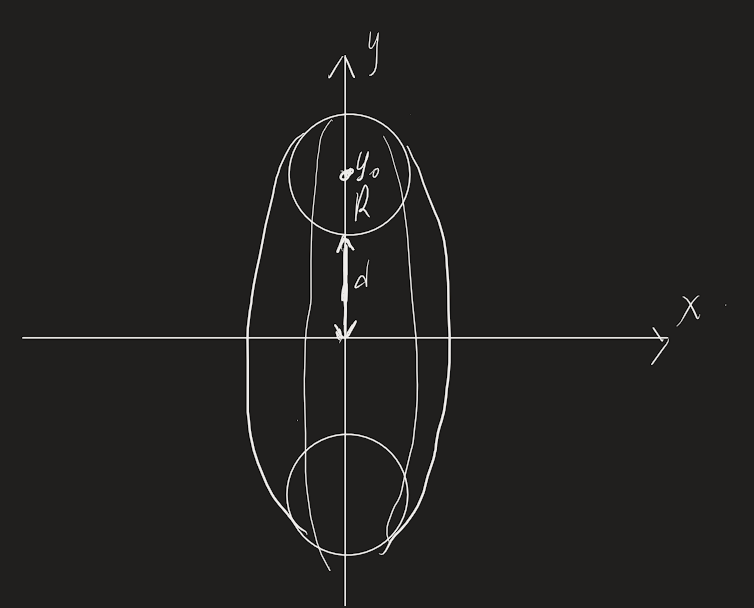 y
y₀
R
d
x